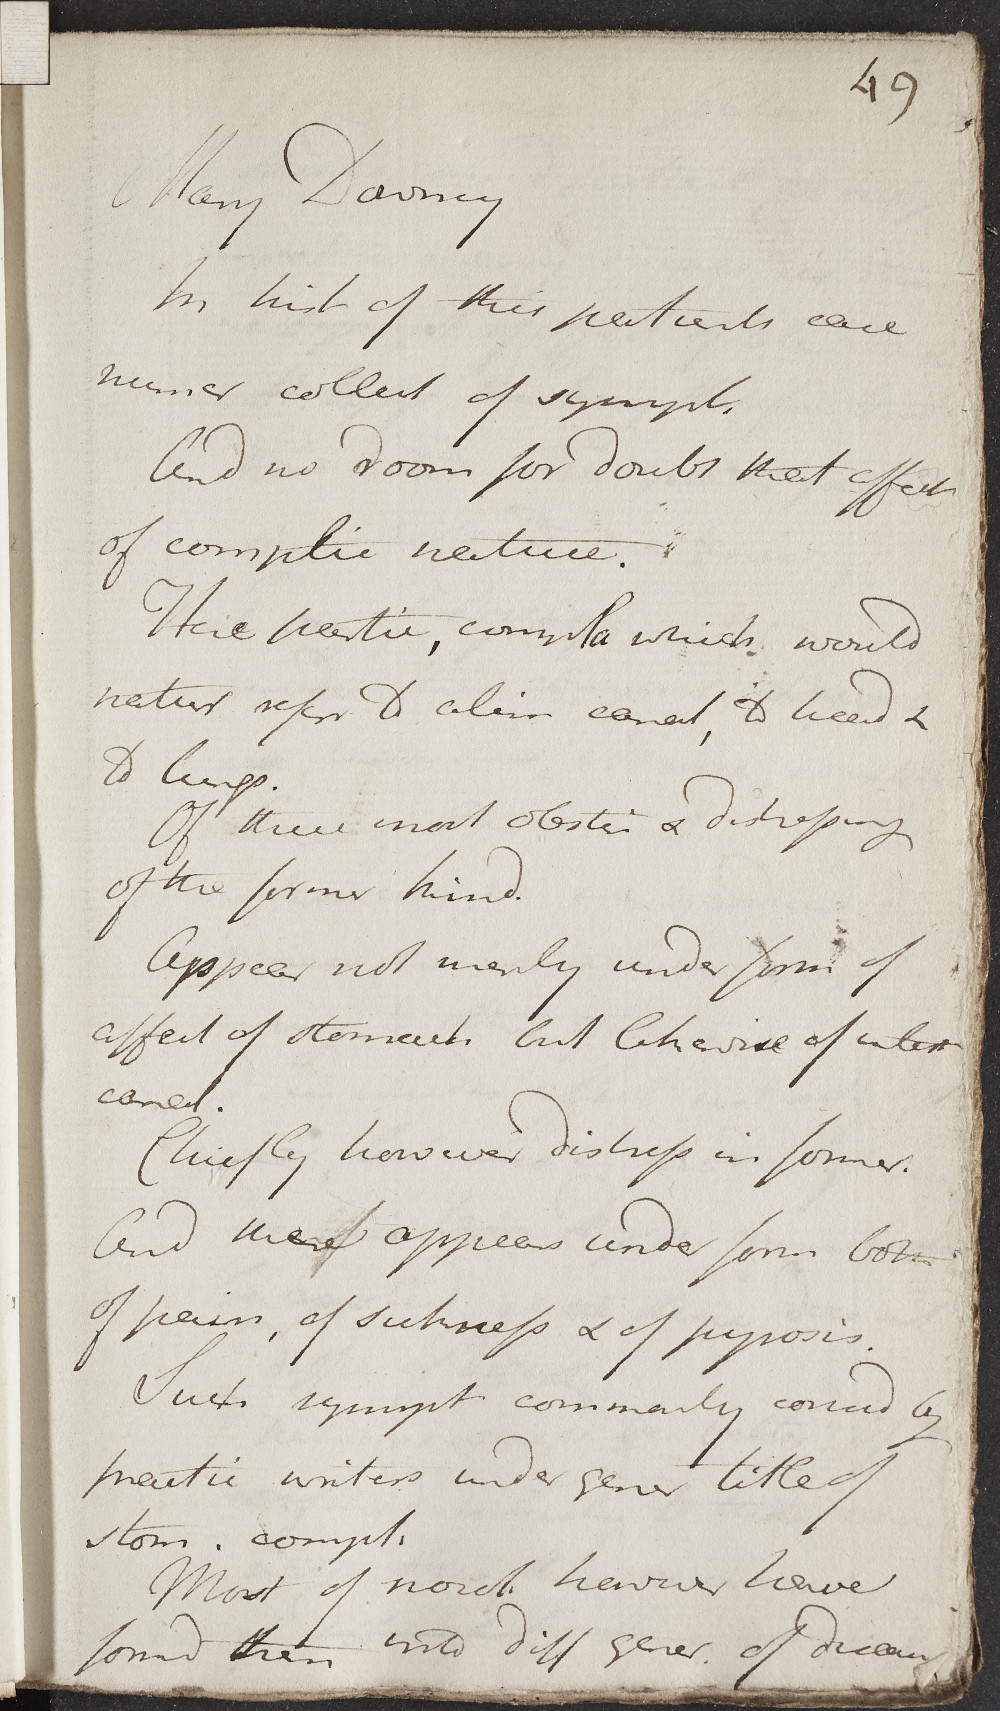 49
Mary Downey
In hist of this patients case
numer collect of sympt.
And no room for doubt that affect
of complic nature.
Here partic, compla which would
natur refer to alim canal, to head &
to lungs.
Of these most obstin & distressing
of the former kind.
Appear not merely under form of
affect of stomach but likewise of intest
canal.
Chiefly however distress in former.
And there appears under form both
of pain, of sickness & of pyrosis.
Such sympt commonly consid by
practic writers under gener title of
stom. compl.
Most of nosol. however have
formd them into diff gener. of diseas.